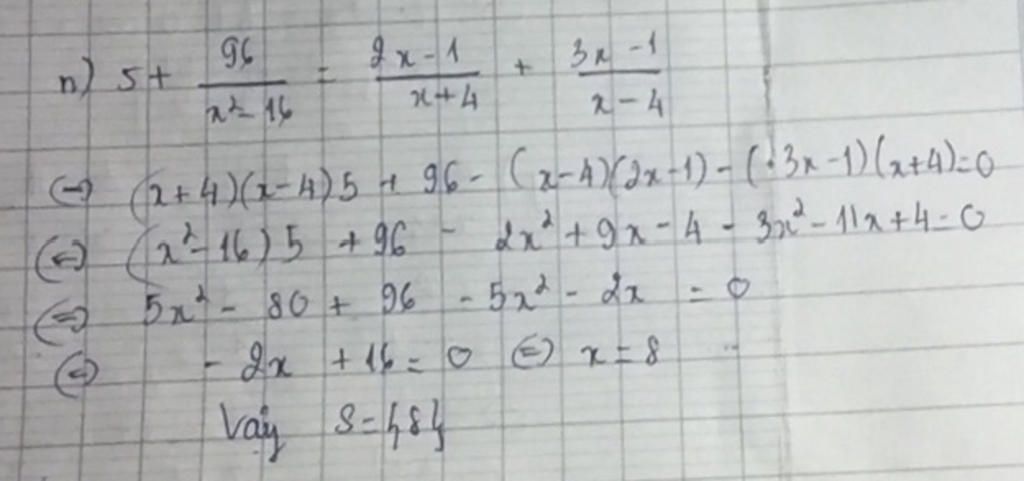 n) 5 + 96/(x² - 16) = (2x - 1)/(x + 4) + (3x - 1)/(x - 4)
(=) (x + 4)(x - 4) 5 + 96 - (x - 4)(2x - 1) - (3x - 1)(x + 4) = 0
(=) (x² - 16) 5 + 96 - 2x² + 9x - 4 - 3x² - 11x + 4 = 0
(=) 5x² - 80 + 96 - 5x² - 2x = 0
(=) - 2x + 16 = 0 (=) x = 8
Vậy S = {8}